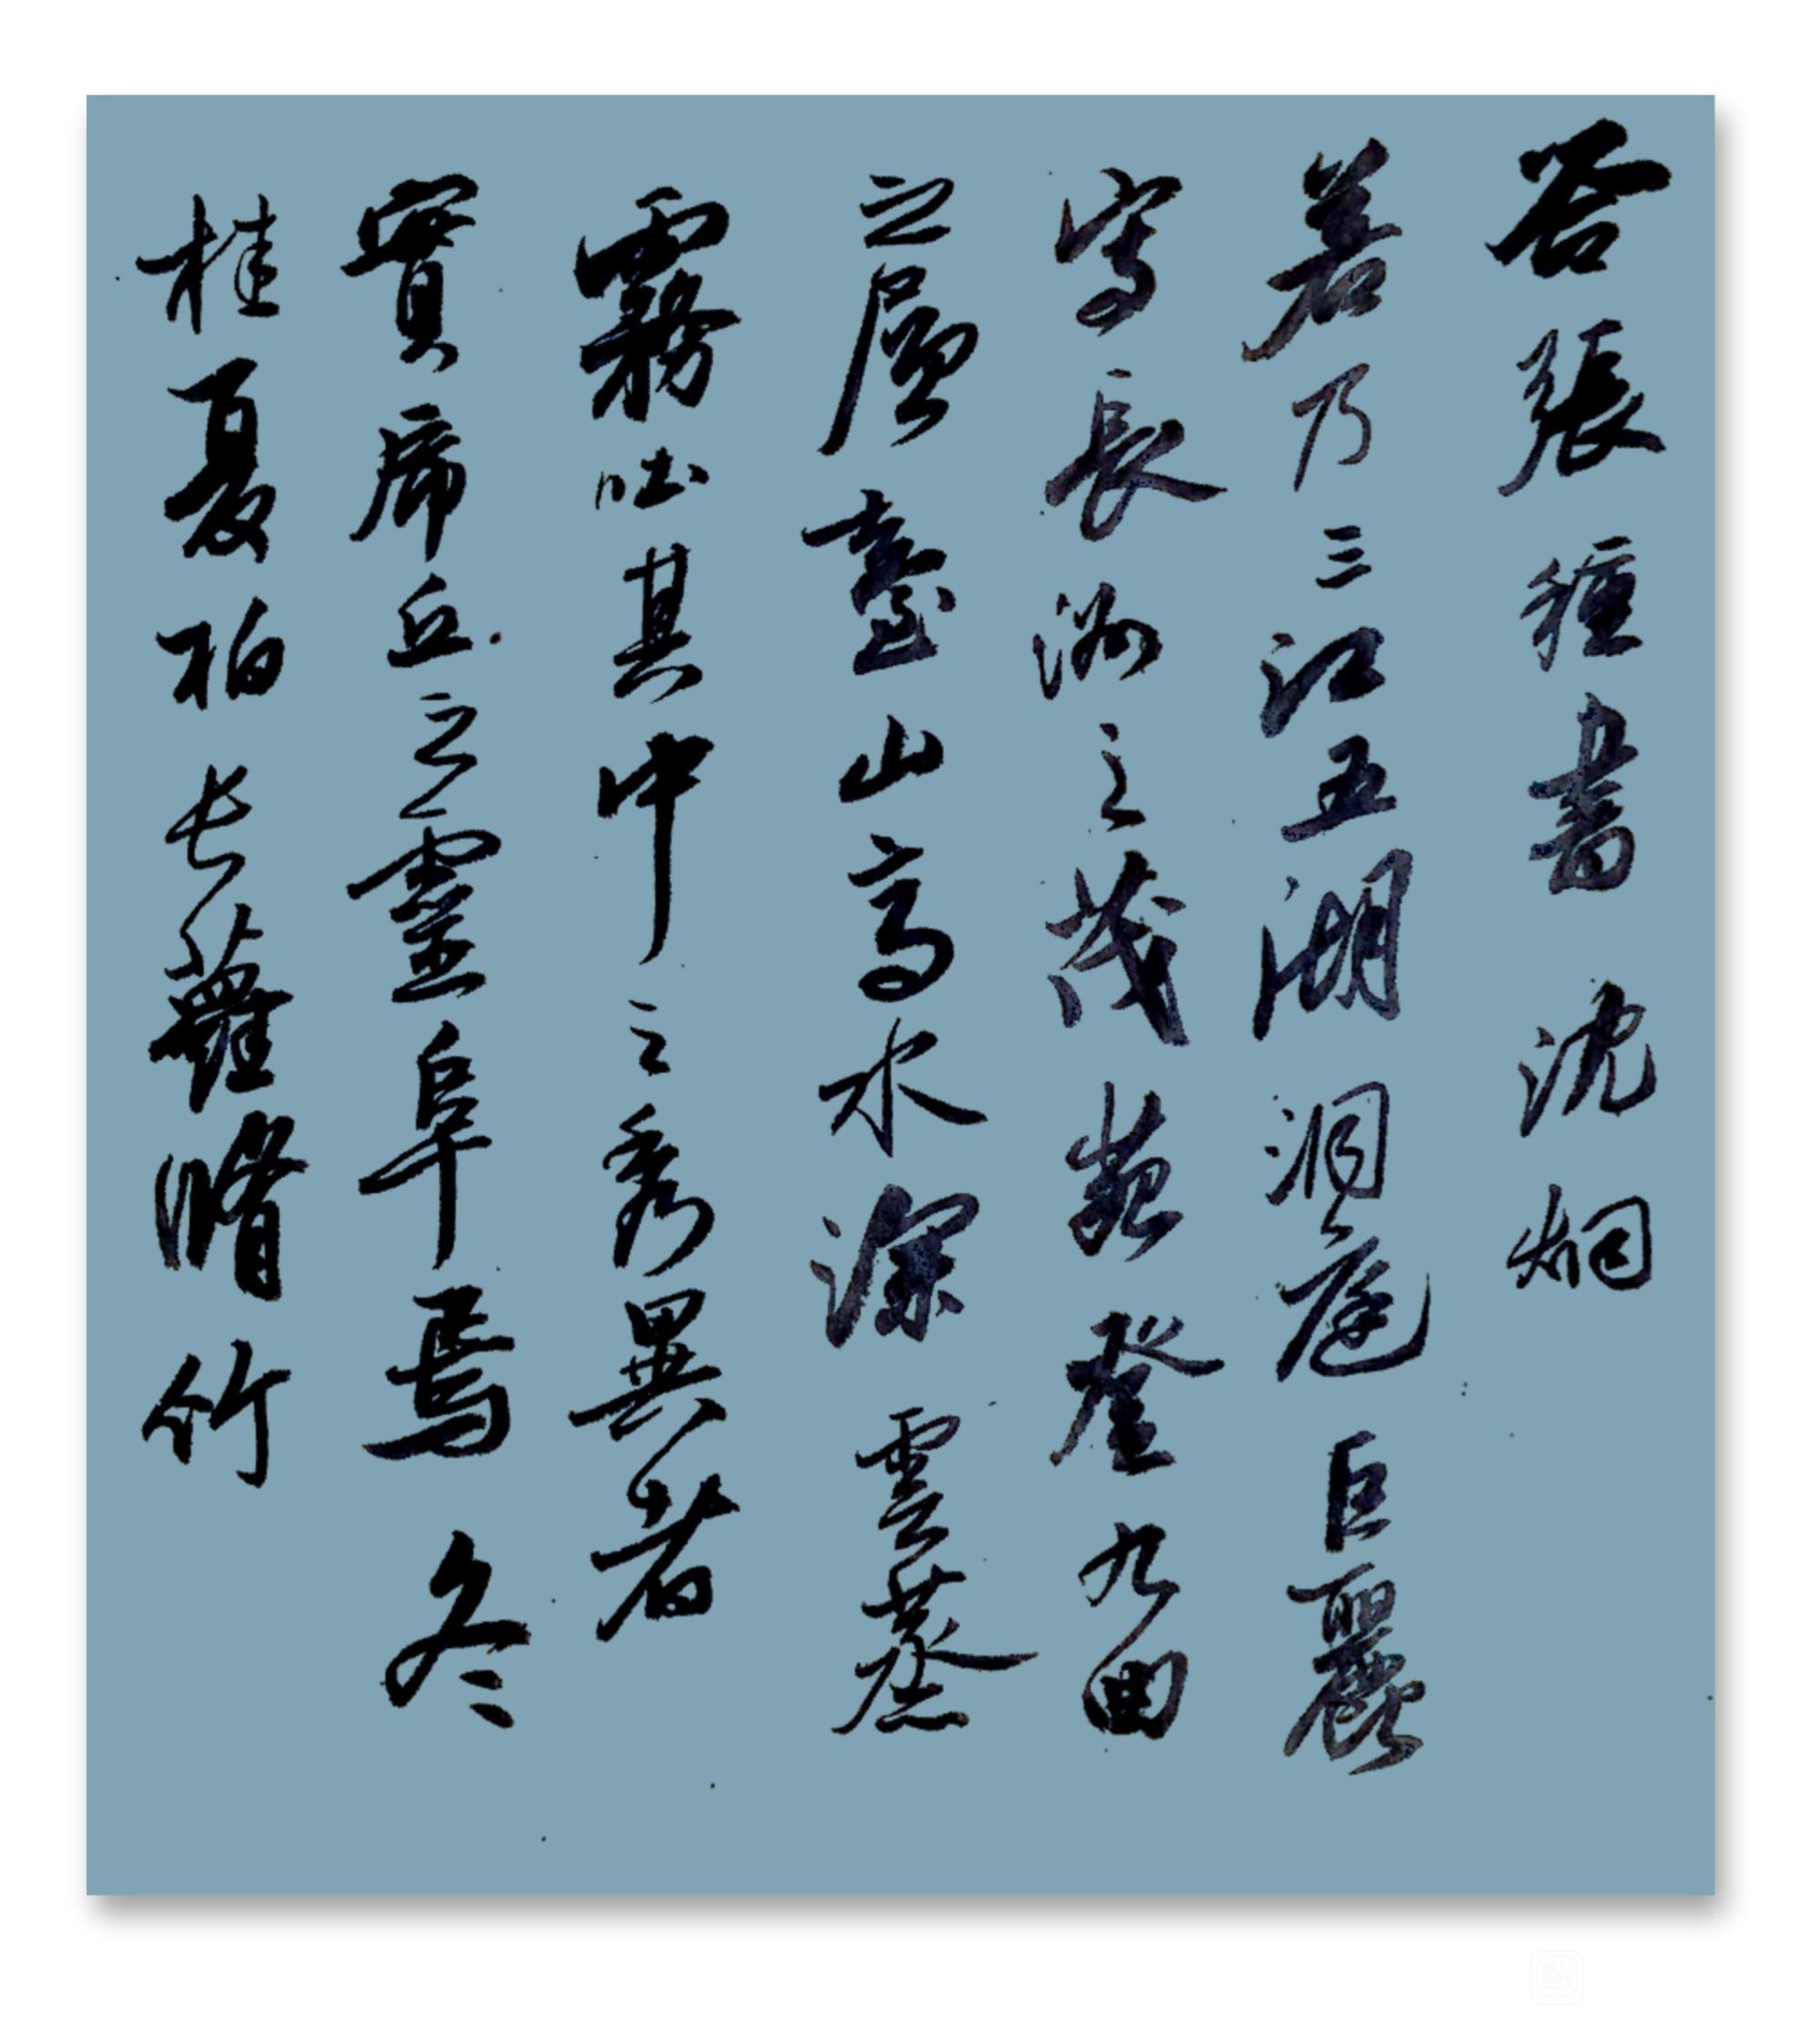 答張種書 沈炯
若乃三江五湖洞庭巨麗
寫長洲之茂苑登九曲
之層臺山高水深雲蒸
霧吐其中之秀異者
實虎丘之靈阜焉冬
桂夏柏長蘿脩竹